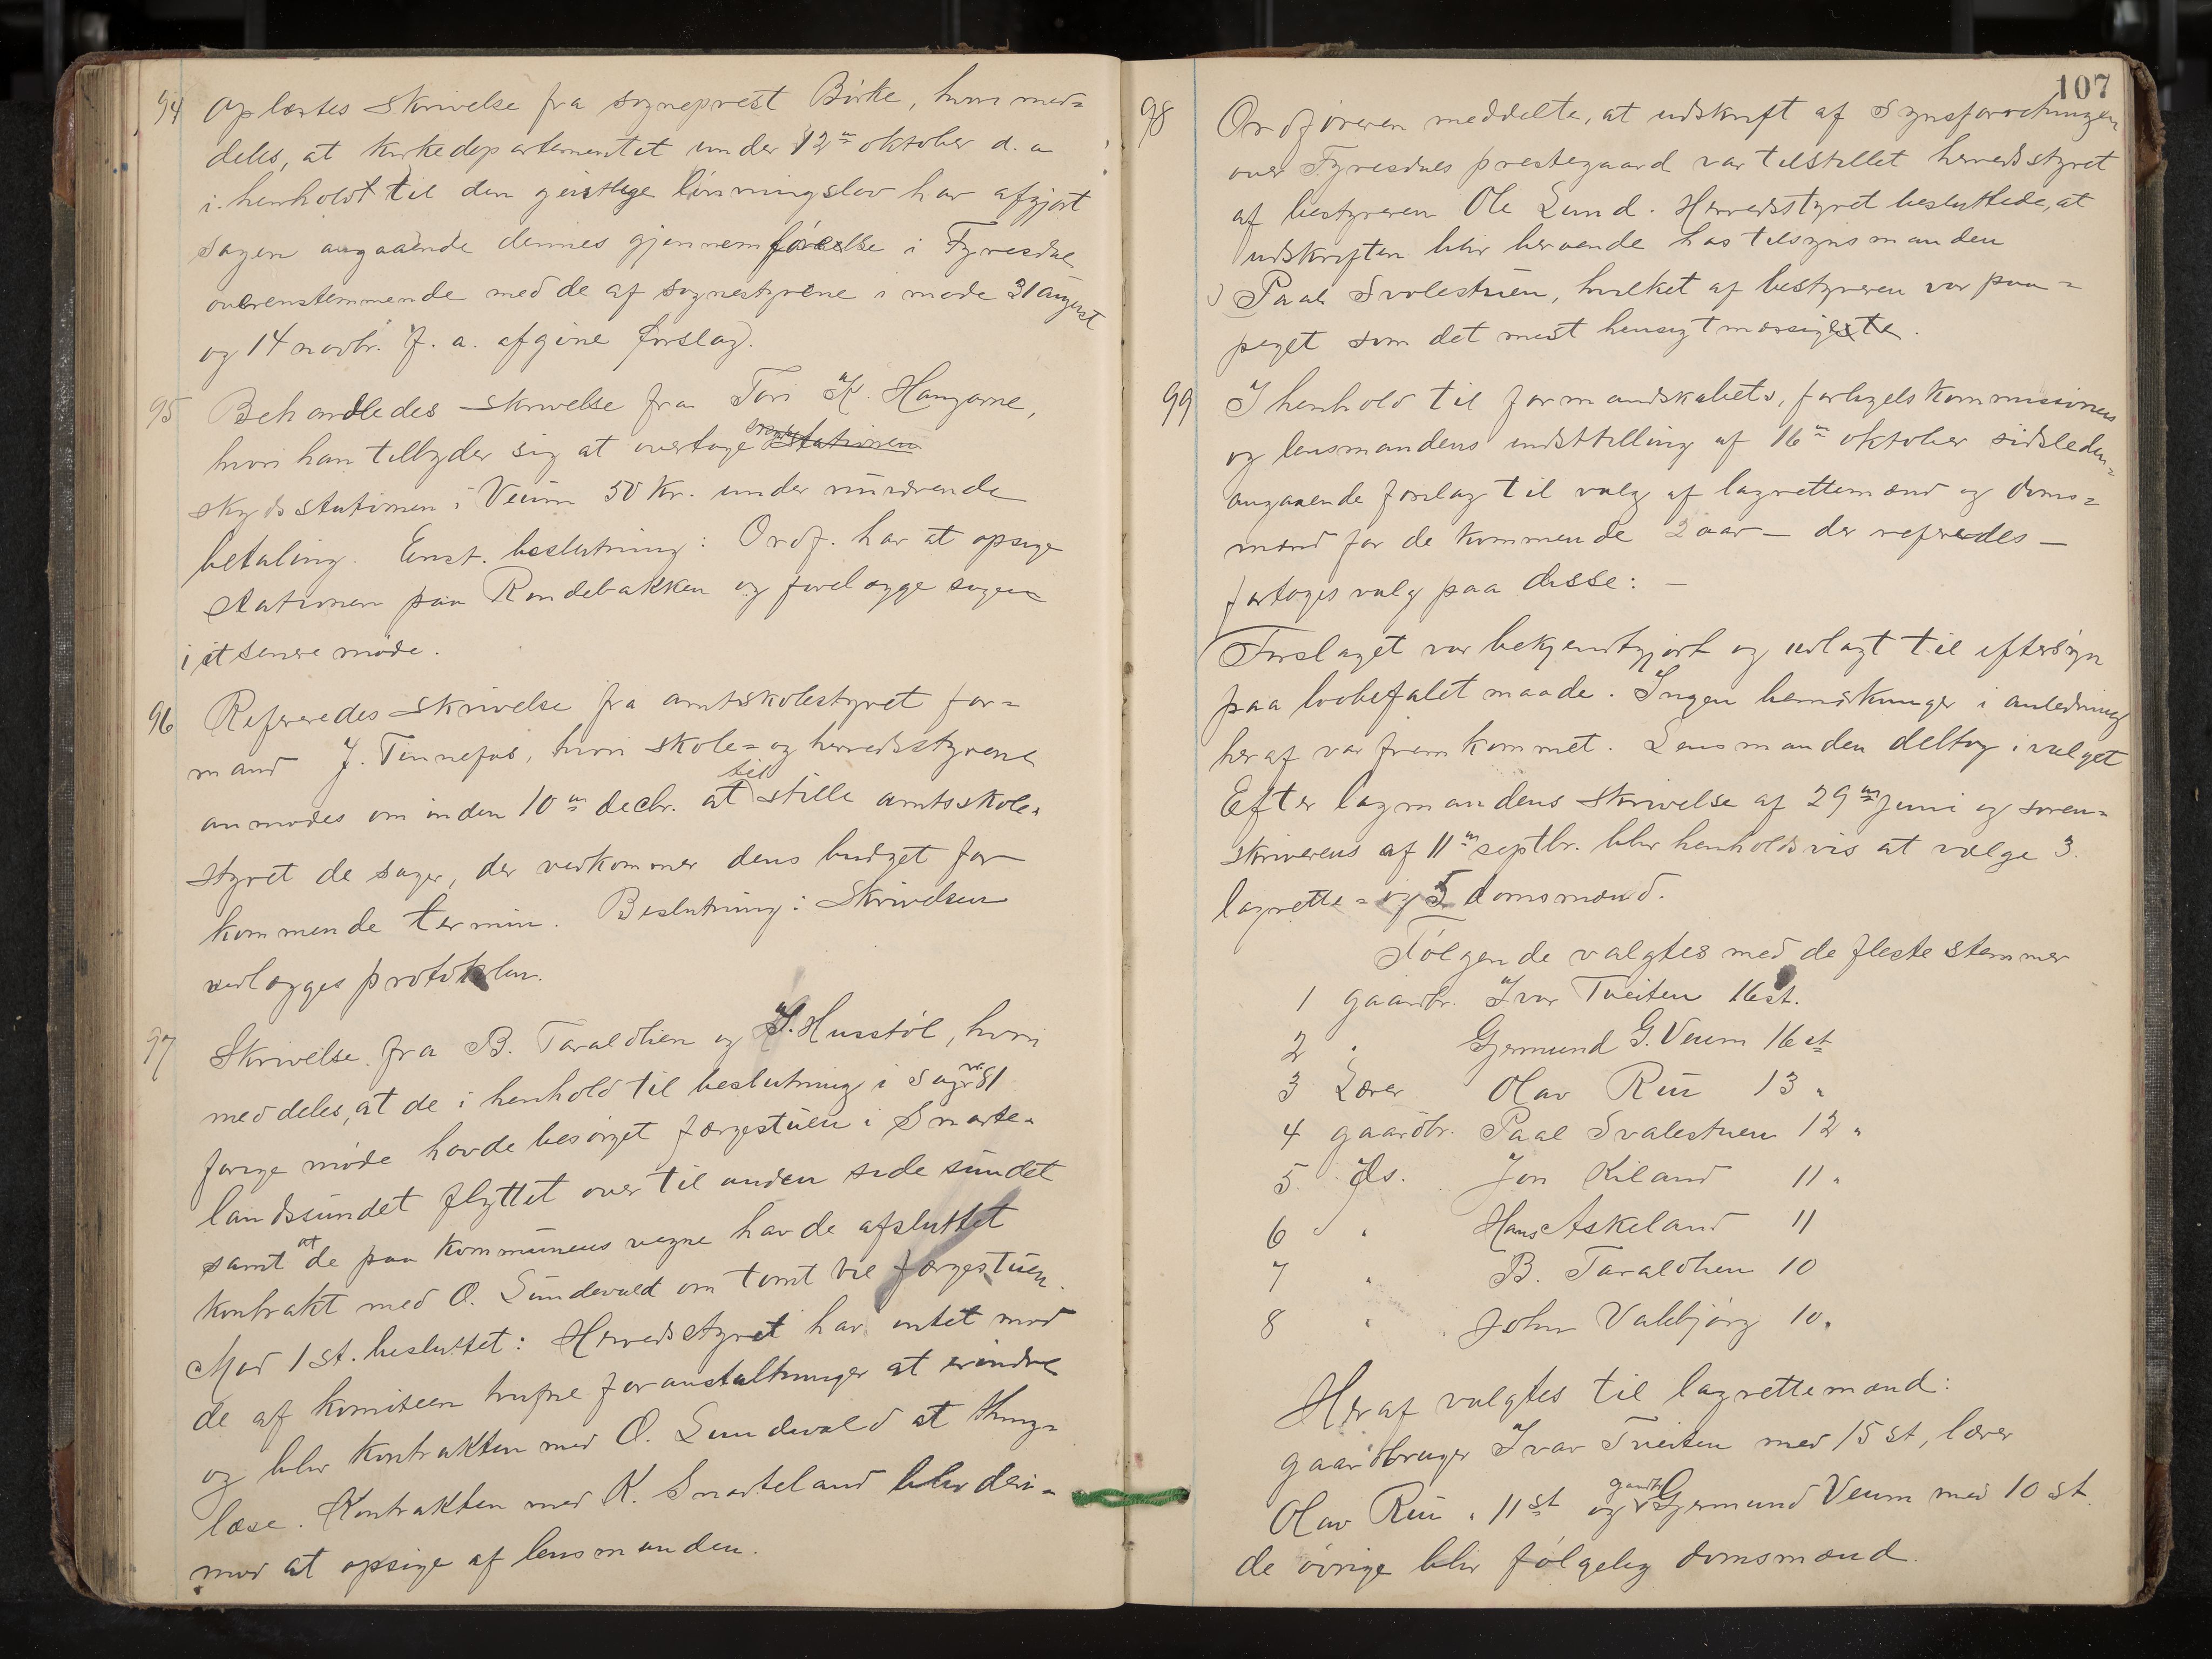 94 Oplæstes skrivelse fra sogneprest Birke, hvori med=
deles, at kirkedepartementet under 12te oktober d. a
i henholdt til den geistlige lønningslov har afgjort
sagen angaaende dennes gjennemførelse i Fyresdal
overenstemmende med de af sognestyrene i møde 31 august
og 14 novbr. f. a. afgivne forslag.
95 Behandledes skrivelse fra Tov K. Haugarne,
hvori han tilbyder sig at overtage stationen
skydsstationen i Veum 50 kr. under nuværende
betaling. Enst. beslutning: Ordf. har at opsige
stationen paa Rondebakken og forelægge sagen
i et senere møde.
96 Refereredes skrivelse fra amtskolestyret for=
mand J. Tinnefos, hvori skole= og herredsstyrene
anmodes om inden 10de decbr. at tilstille amtsskole=
styret de sager, der vedkommer dens budget for
kommende termin. Beslutning: Skrivelsen
vedlægges protokolen.
97 Skrivelse fra B. Taraldlien og S. Husstøl, hvori
meddeles, at de i henhold til beslutning i sag nr 81
forige møde havde besørget færgestuen i Snarte=
landssundet flyttet over til anden side sundet
samt at de paa kommunens vegne havde afsluttet
kontrakt med O. Sundevald om tomt til færgestuen.
Mod 1 st. besluttet: Herredsstyret har intet mod
de af komiteen trufne foranstaltninger at erindre
og blir kontrakten med O. Sundevald at thing=
læse. Kontrakten med K. Snarteland blir deri=
mod at opsige af lensmanden.
107
98 Ordføreren meddelte, at udskrift af Synsforretningen
over Fyresdals prestegaard var tilstillet herredsstyret
af bestyreren Ole Lund. Herredsstyret besluttede, at
udskriften blir beroende hos tilsynsmanden
Paal Svalestuen, hvilket af bestyreren var paa=
peget som det mest hensigtmæssigste.
99 I henhold til formandskabets, forligelskommissionens
og lensmandens indstilling af 16de oktober sidsleden=
angaaende forslag til valg af lagrettemænd og doms=
mænd for de kommende 2 aar — der refereredes —
fortoges valg paa disse: —
Forslaget var bekjendtgjort og udlagt til eftersyn
paa lovbefalet maade. Ingen bemærkninger i anledning
heraf var fremkommet. Lensmanden deltog i valget
Efter lagmandens skrivelse af 29de juni og soren=
skriverens af 11te septbr. blir henholdsvis at vælge 3.
lagrette= og 5 domsmænd.
Følgende valgtes med de fleste stemmer
1 gaardbr. Ivar Tveiten 16 st.
2 " Gjermund G. Veum 16 st
3 Lærer Olav Rui 13 "
4 gaardbr. Paal Svalestuen 12 "
5 Ds. Jon Kiland 11 "
6 " Hans Askeland 11
7 " B. Taraldlien 10
8 " John Vakbjørg 10 "
Heraf valgtes til lagrettemænd:
gaardbruger Ivar Tveiten med 15 st, lærer
Olav Rui " 11 st og gaardbr Gjermund Veum med 10 st
de øvrige blir følgelig domsmænd.